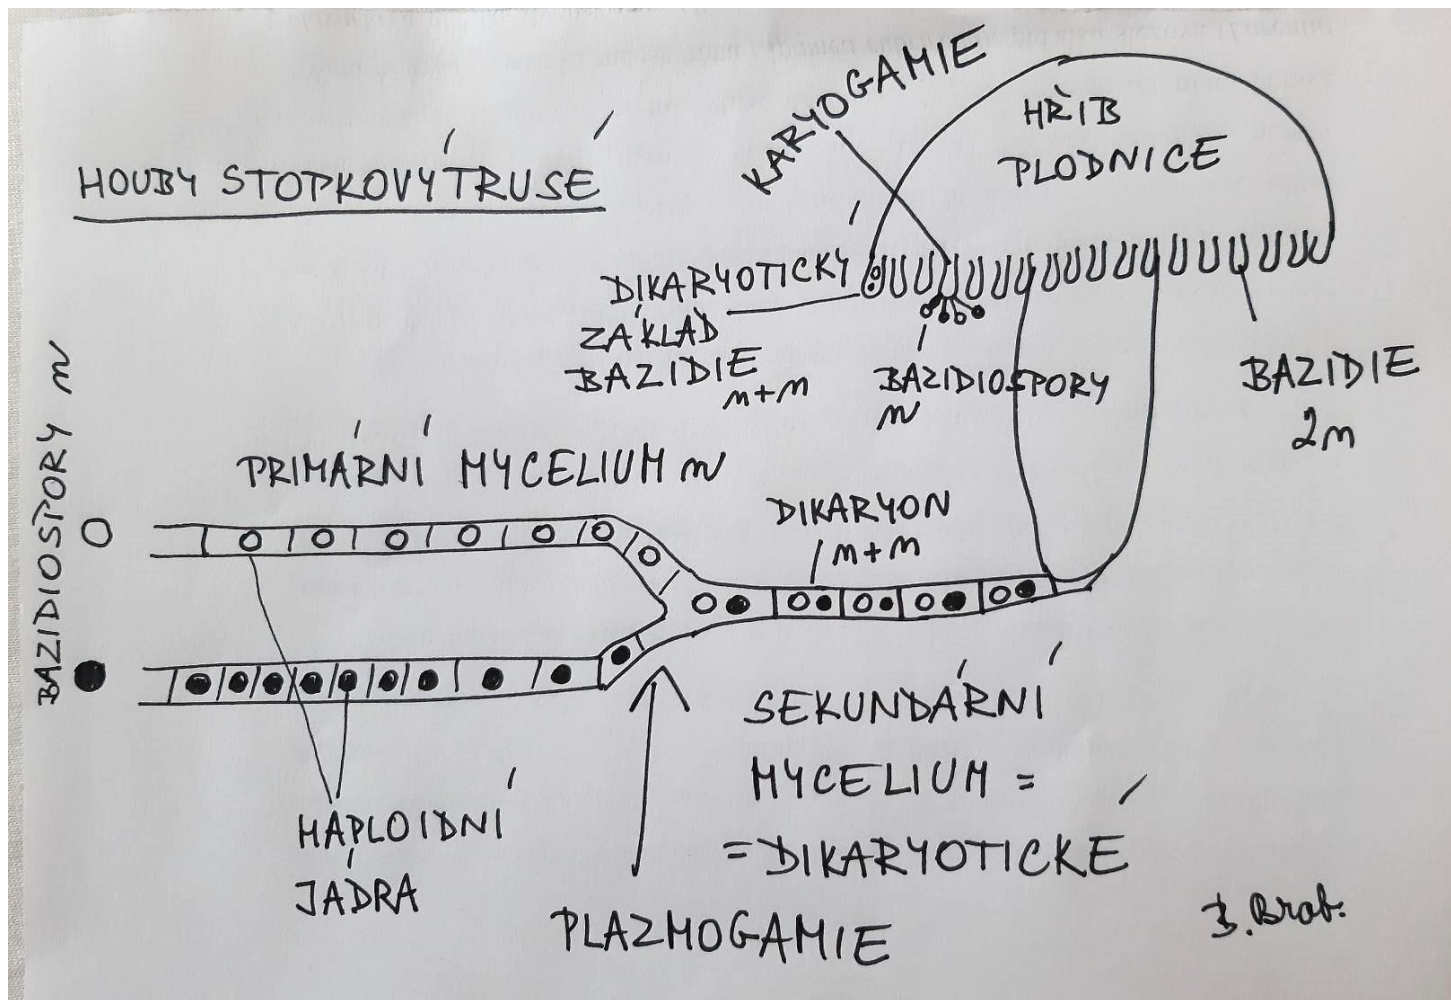 HOUBY STOPKOVÝTRUSÉ
KARYOGAMIE
HŘIB
PLODNICE
DIKARYOTICKÝ
ZÁKLAD
BAZIDIE
n+n
BAZIDIOSPORY
n
BAZIDIE
2n
BAZIDIOSPORY n
PRIMÁRNÍ MYCELIUM n
DIKARYON
n+n
HAPLOIDNÍ
JÁDRA
PLAZMOGAMIE
SEKUNDÁRNÍ
MYCELIUM =
= DIKARYOTICKÉ
B. Brab.